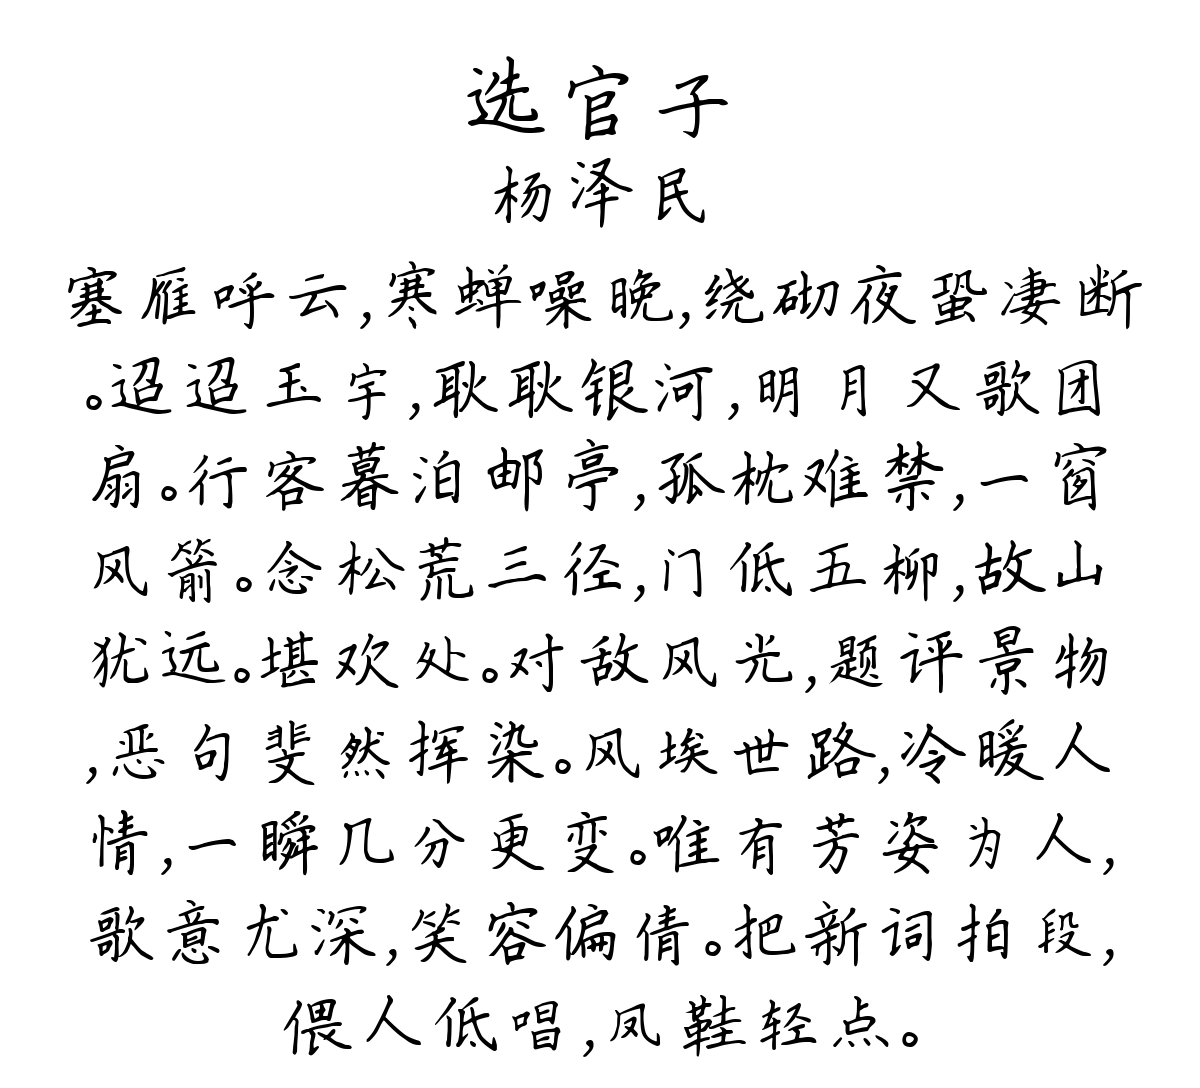 选官子
杨泽民
塞雁呼云,寒蝉噪晚,绕砌夜蛩凄断
。迢迢玉宇,耿耿银河,明月又歌团
扇。行客暮泊邮亭,孤枕难禁,一窗
风箭。念松荒三径,门低五柳,故山
犹远。堪欢处。对敌风光,题评景物
,恶句斐然挥染。风埃世路,冷暖人
情,一瞬几分更变。唯有芳姿为人,
歌意尤深,笑容偏倩。把新词拍段,
偎人低唱,凤鞋轻点。